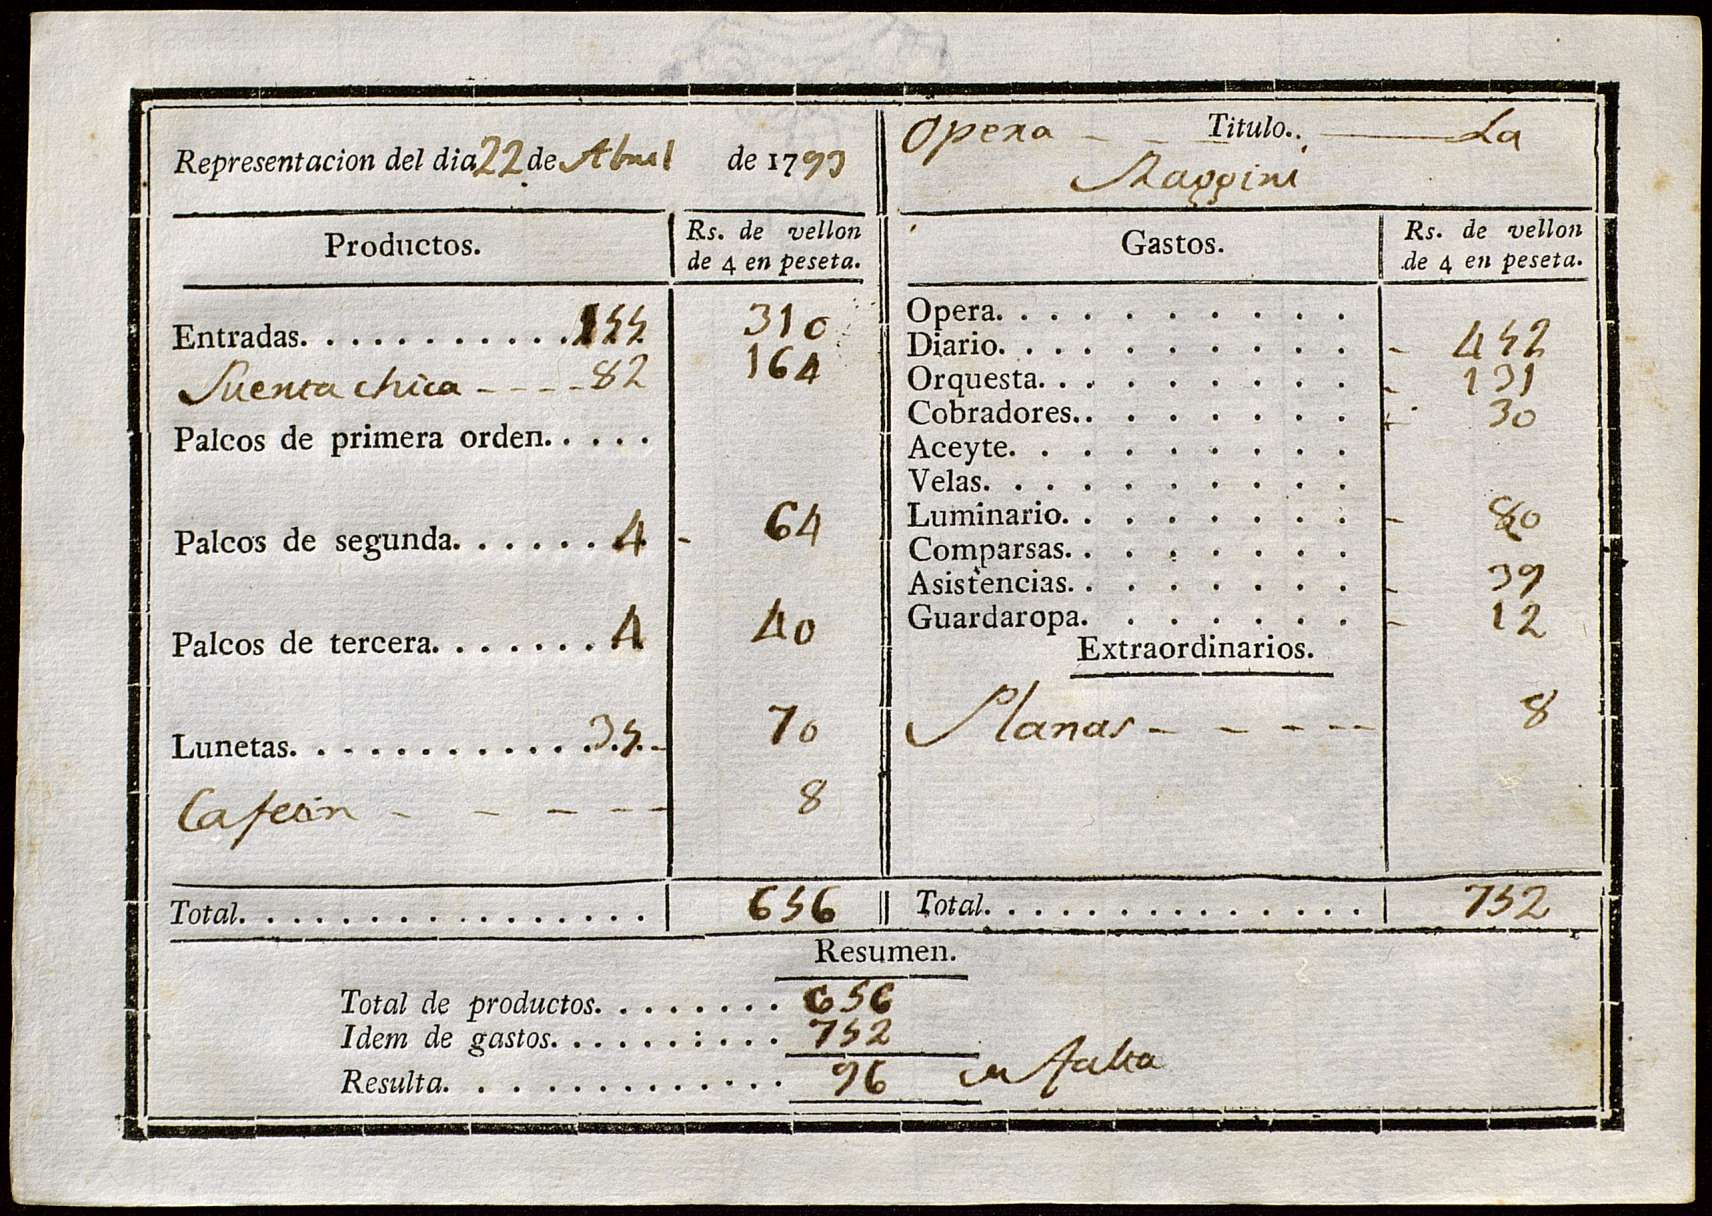 Representacion del dia 22 de Abril de 1793
Opera - - Titulo.. La
Raggini
Productos.
Rs. de vellon
de 4 en peseta.
Entradas. . . . . . . . . . . . 155 310
Puerta chica - - - - 82 164
Palcos de primera orden. . . . .
Palcos de segunda. . . . . . . 4 - 64
Palcos de tercera. . . . . . . 4 40
Lunetas. . . . . . . . . . . . 35 - 70
Cafetin - - - - - 8
Total. . . . . . . . . . . . . . . . . 656
Gastos.
Rs. de vellon
de 4 en peseta.
Opera. . . . . . . . . .
Diario. . . . . . . . . . - 452
Orquesta. . . . . . . . . - 131
Cobradores. . . . . . . . - 30
Aceyte. . . . . . . . . .
Velas. . . . . . . . . . .
Luminario. . . . . . . . - 80
Comparsas. . . . . . . .
Asistencias. . . . . . . . - 39
Guardaropa. . . . . . . - 12
Extraordinarios.
Planas - - - - - 8
Total. . . . . . . . . . . . . . . 752
Resumen.
Total de productos. . . . . . . . 656
Idem de gastos. . . . . . : . . . . 752
Resulta. . . . . . . . . . . . . . 96 en falta